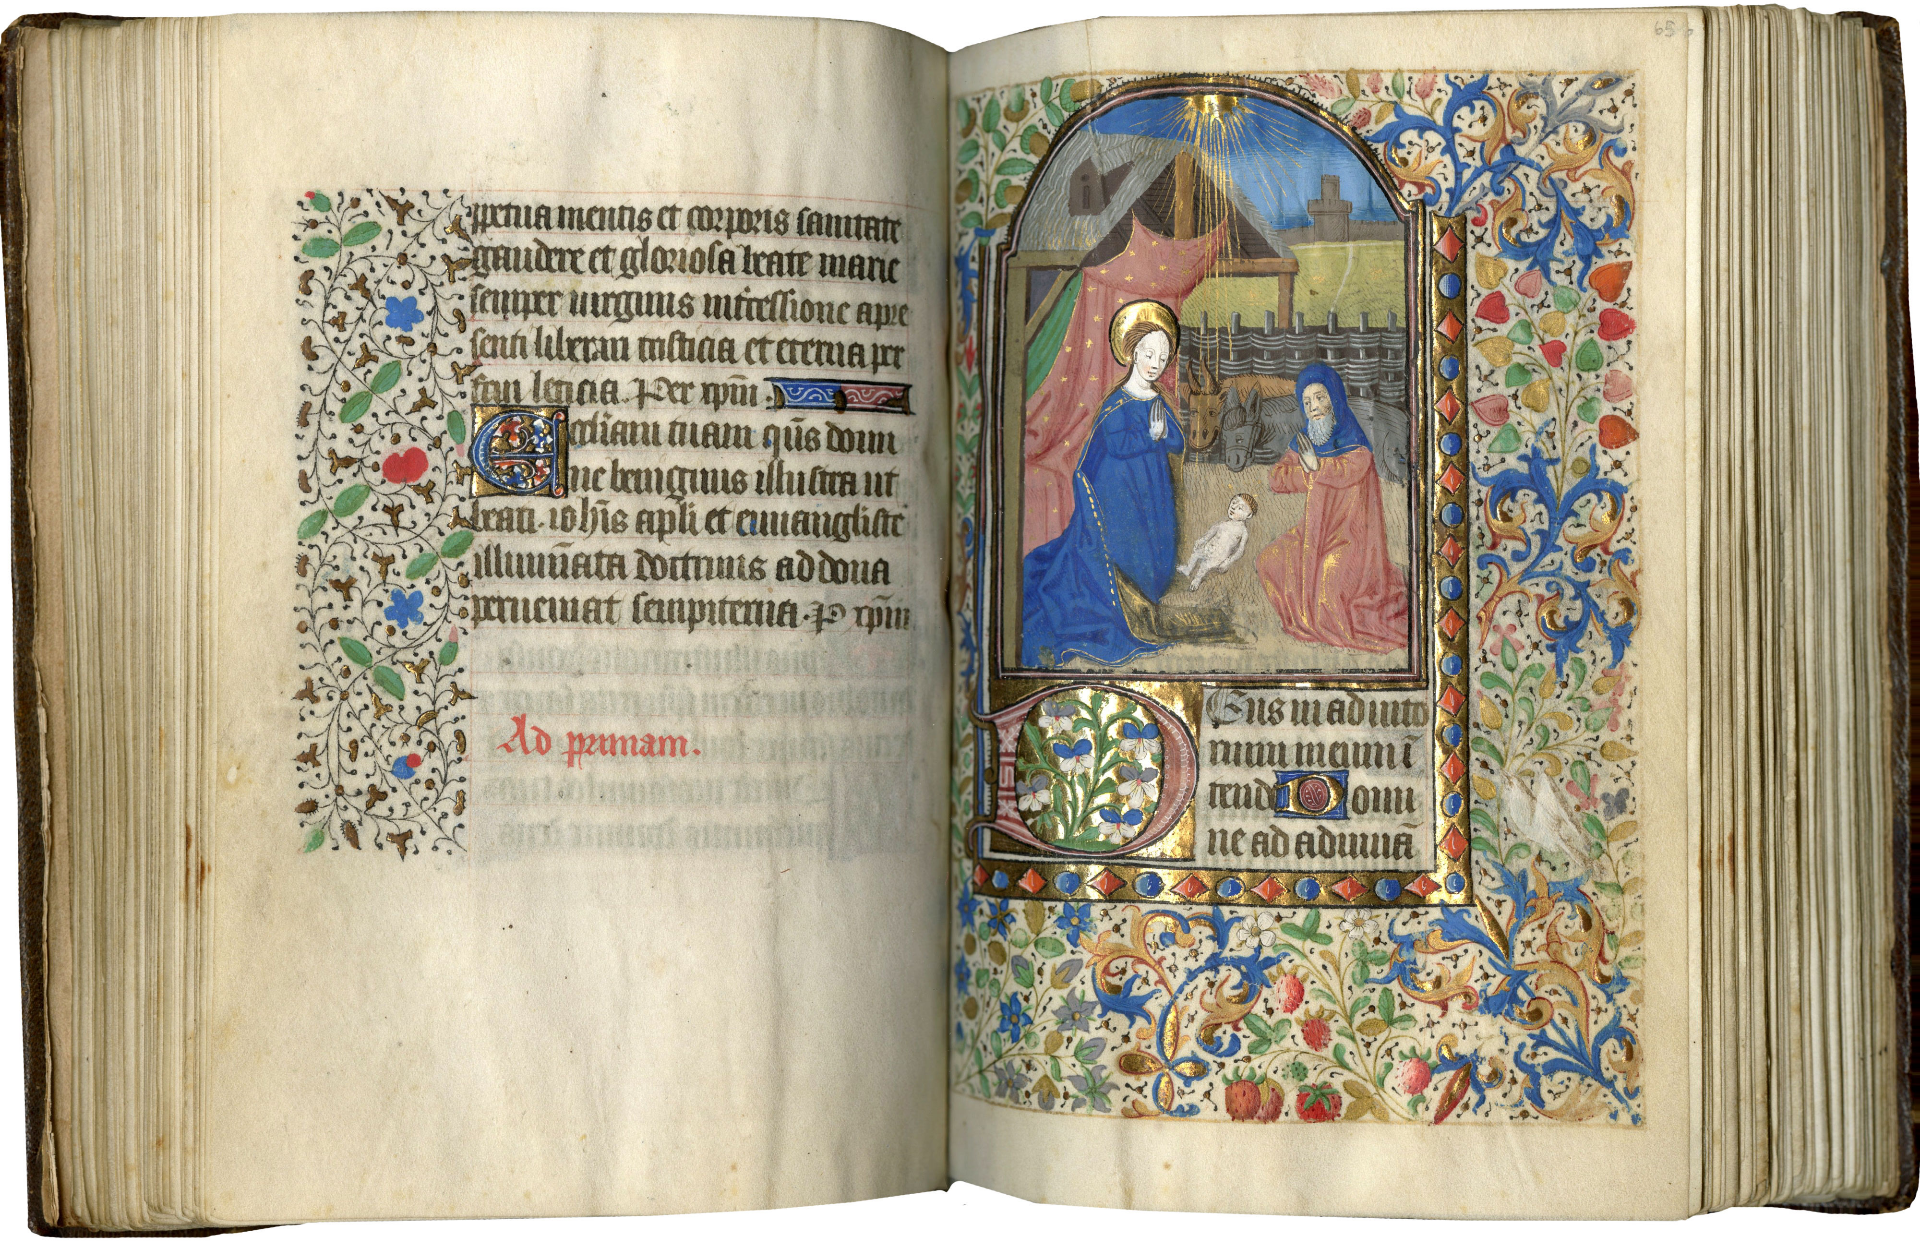 ppetua mentis et corporis sanitate
gaudere et gloriosa beate marie
semper virginis int̄cessione a pre
senti liberari tristicia et eterna per
frui leticia. Per xp̄m.
Eccl̄iam tuam q̄s domi
ne benignus illustra ut
beati ioh̄is apl̄i et euuangliste
illumin̄ata doctrinis ad dona
perueniat sempiterna. P xp̄m
Ad primam.
65
Deus in adiuto
rium meum ī
tende Domi
ne ad adiuuā